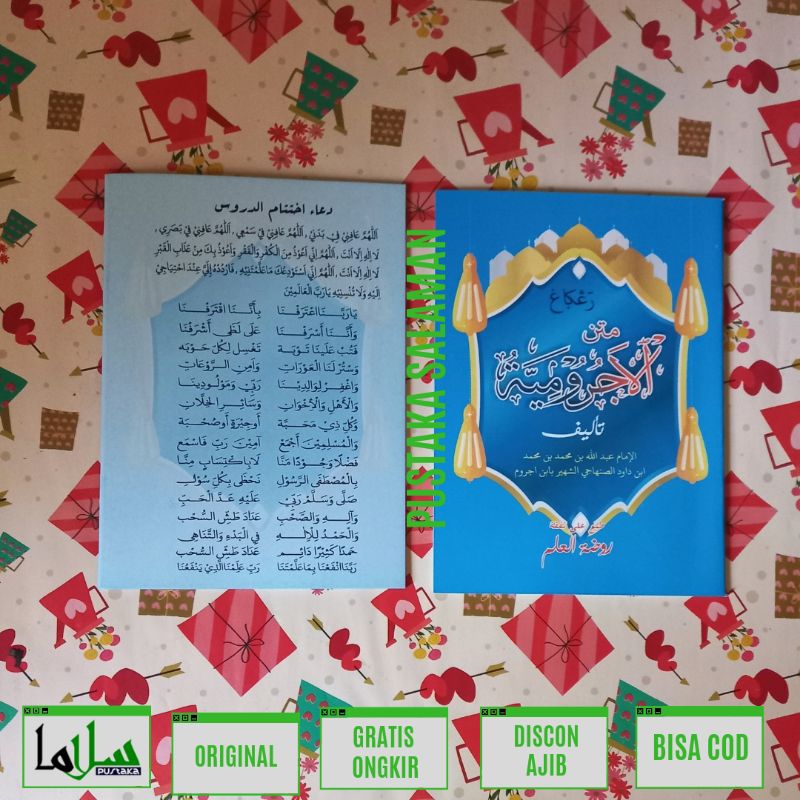 دعاء اختتام الدروس
اَللّٰهُمَّ عَافِنِيْ فِيْ بَدَنِيْ، اَللّٰهُمَّ عَافِنِيْ فِيْ سَمْعِيْ، اَللّٰهُمَّ عَافِنِيْ فِيْ بَصَرِيْ،
لَا اِلٰهَ اِلَّا اَنْتَ، اَللّٰهُمَّ اِنِّيْ اَعُوْذُ مِنَ الْكُفْرِ وَالْفَقْرِ وَاَعُوْذُ بِكَ مِنْ عَذَابِ الْقَبْرِ
لَا اِلٰهَ اِلَّا اَنْتَ، اَللّٰهُمَّ اِنِّيْ اَسْتَوْدِعُكَ مَا عَلَّمْتَنِيْهِ، فَارْدُدْهُ اِلَيَّ عِنْدَ احْتِيَاجِيْ
اِلَيْهِ وَلَا تُنْسِنِيْهِ يَا رَبَّ الْعَالَمِيْنَ
يَا رَبَّنَا اعْتَرَفْنَا بِأَنَّنَا اقْتَرَفْنَا
وَأَنَّنَا أَسْرَفْنَا عَلَى لَظَى أَشْرَفْنَا
فَتُبْ عَلَيْنَا تَوْبَةً تَغْسِلْ لِكُلِّ حَوْبَةٍ
وَاسْتُرْ لَنَا الْعَوْرَاتِ وَآمِنِ الرَّوْعَاتِ
وَاغْفِرْ لِوَالِدِيْنَا رَبِّيْ وَمَوْلُوْدِيْنَا
وَالْأَهْلِ وَالْإِخْوَانِ وَسَائِرِ الْخِلَّانِ
وَكُلِّ ذِيْ مَحَبَّةٍ أَوْجِيْرَةٍ أَوْصُحْبَةٍ
وَالْمُسْلِمِيْنَ أَجْمَعْ آمِيْنَ رَبِّ فَاسْمَعْ
فَضْلًا وَجُوْدًا مَنَّا لَا بِاكْتِسَابٍ مِنَّا
بِالْمُصْطَفَى الرَّسُوْلِ نَحْظَى بِكُلِّ سُوْلِ
صَلَّى وَسَلَّمْ رَبِّيْ عَلَيْهِ عَدَّ الْحَبِّ
وَآلِهِ وَالصَّحْبِ عَدَادَ طَشِّ السُّحْبِ
وَالْحَمْدُ لِلْإِلٰهِ فِي الْبَدْءِ وَالتَّنَاهِيْ
حَمْدًا كَثِيْرًا دَائِمْ عَدَادَ طَشِّ السُّحْبِ
رَبَّنَا انْفَعْنَا بِمَا عَلَّمْتَنَا رَبِّ عَلِّمْنَا الَّذِيْ يَنْفَعُنَا
PUSTAKA SALAMAN
متن
الآجُرُومِيَّةُ
تأليف
الإمام عبد الله بن محمد بن محمد
ابن داود الصنهاجي الشهير بابن اجروم
روضة العلم
سلاما
PUSTAKA
ORIGINAL
GRATIS
ONGKIR
DISCON
AJIB
BISA COD